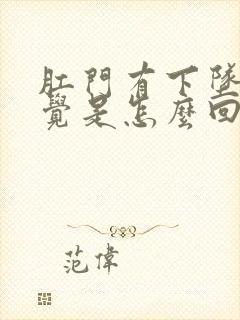 肛門有下墜
覺是怎麼回
范偉